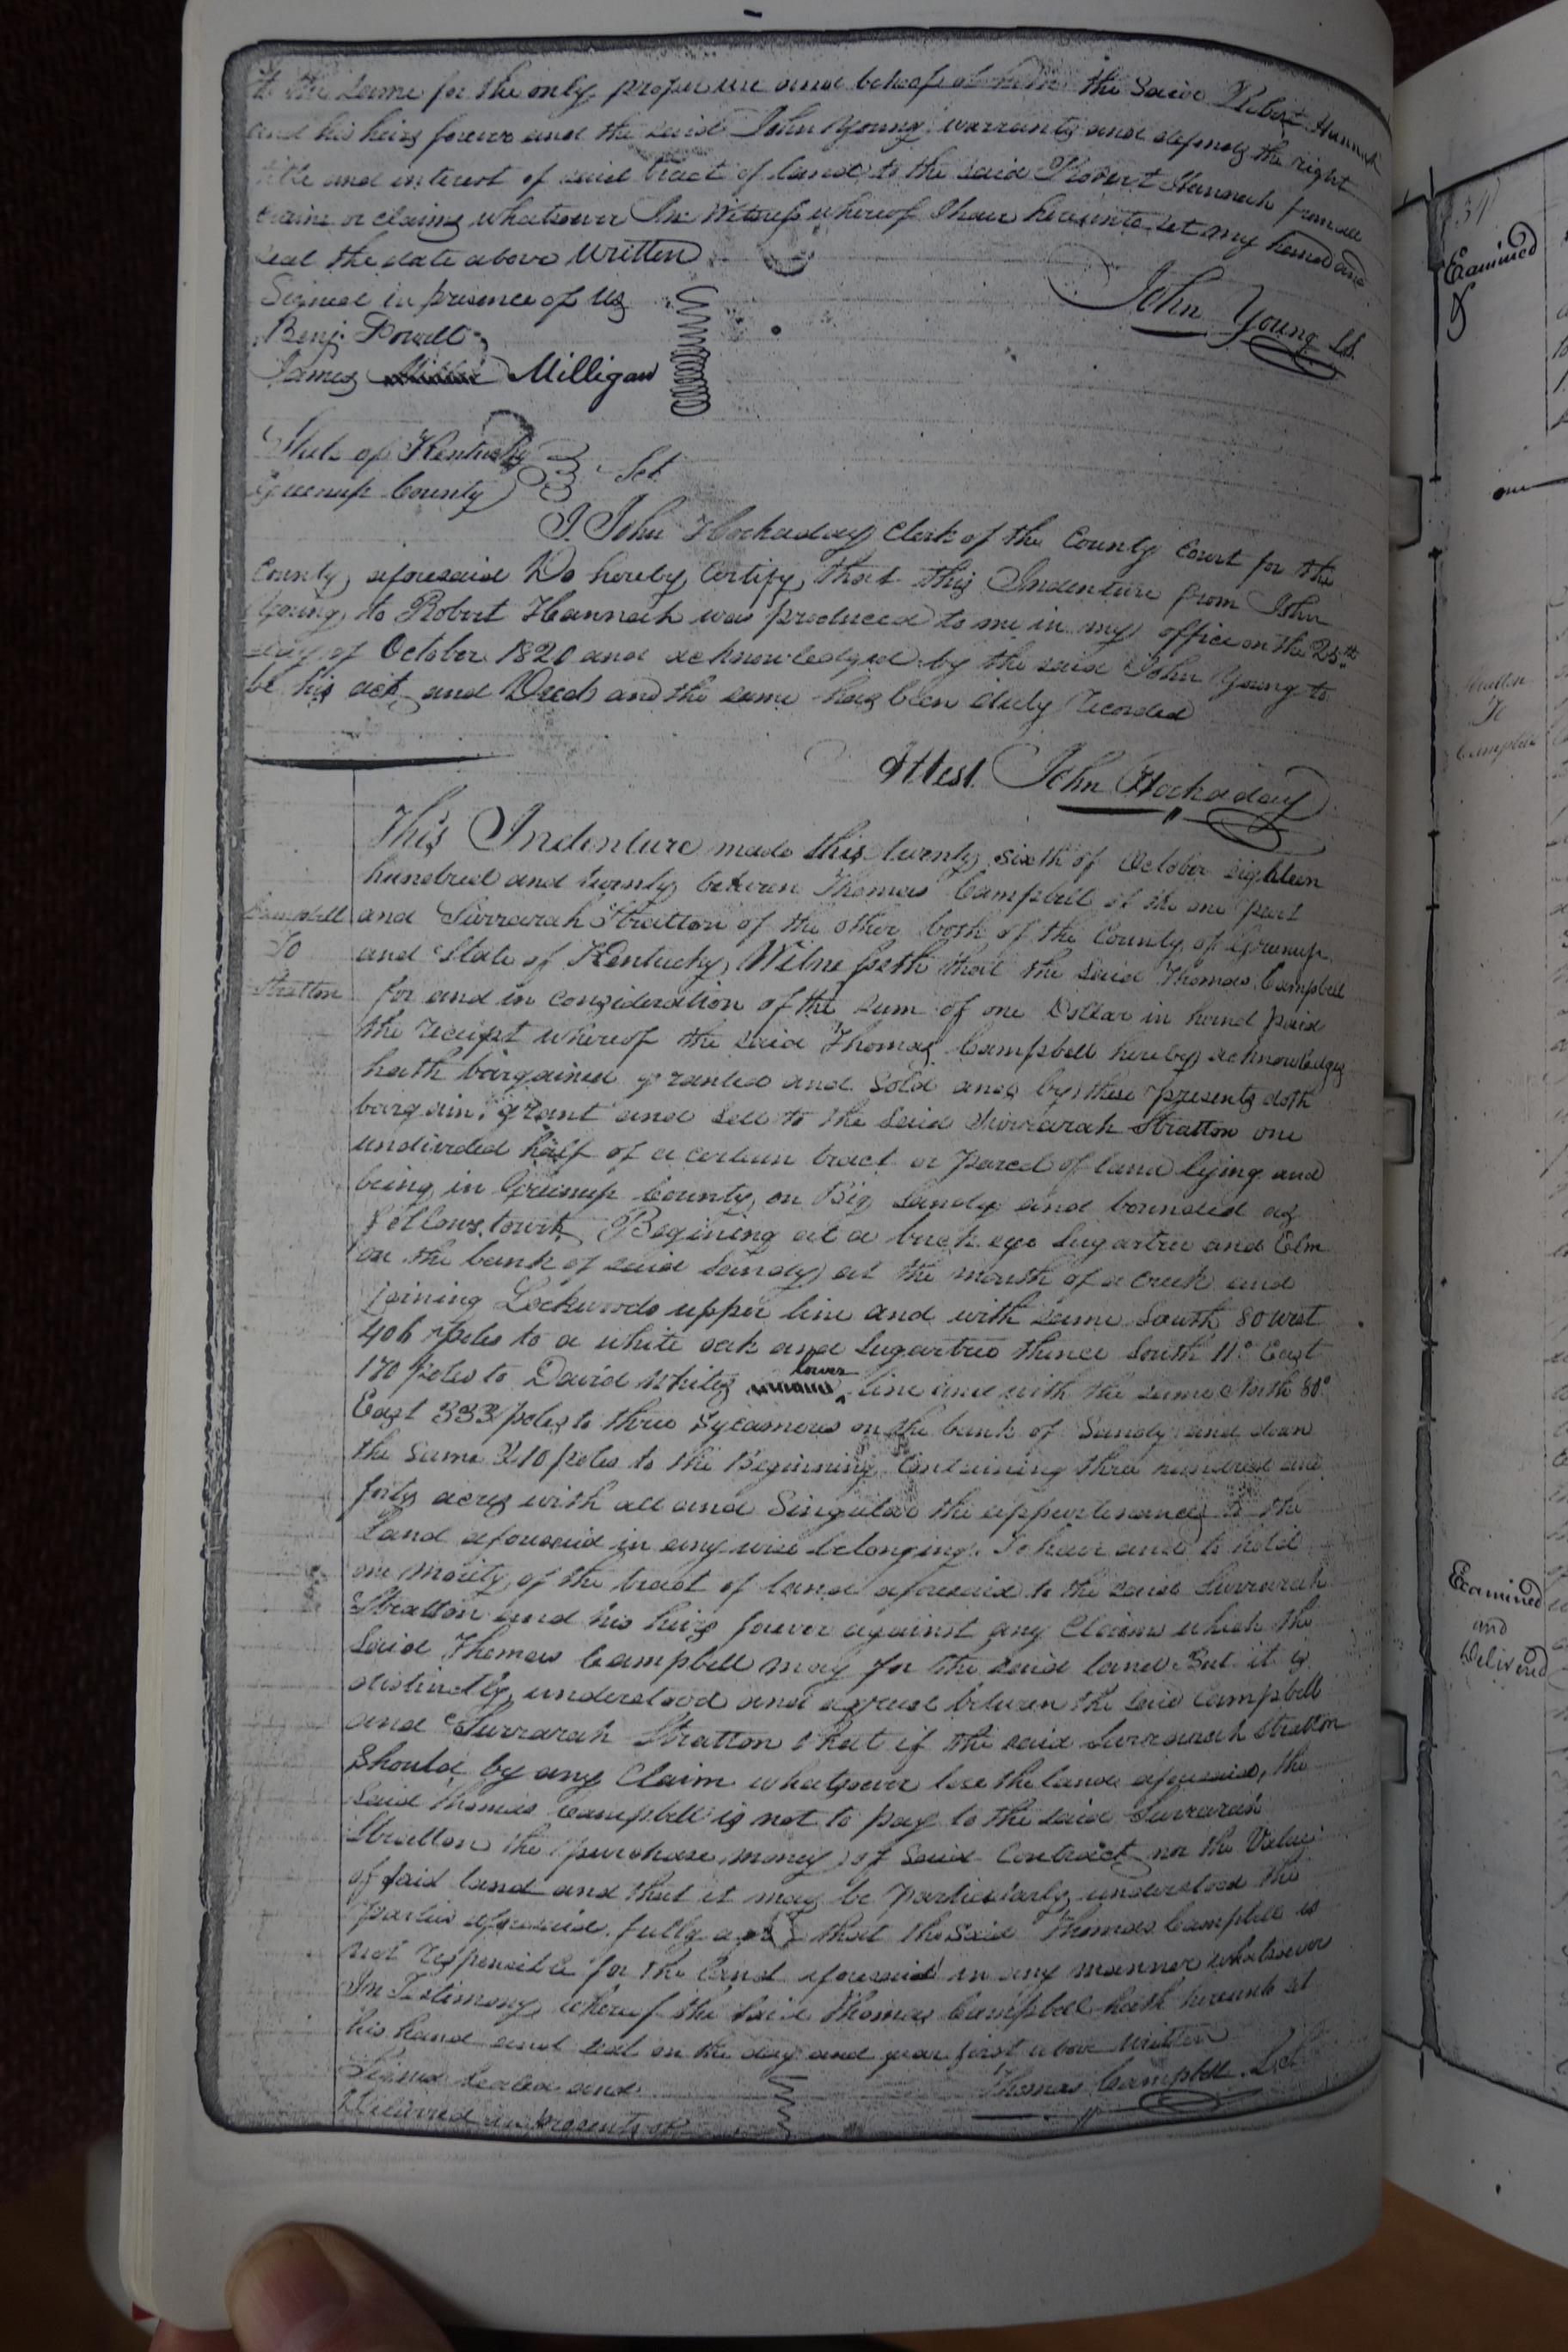 to the same for the only proper use and behoof of him the Said Robert Hannah
and his heirs forever and the said John Young warrants and defends the right
title and interest of said tract of land to the said Robert Hannah from all
claim or claims whatsoever In Witness whereof I have hereunto set my hand and
seal the date above Written
Signed in presence of us
John Young Ls.
Benj. Powell
James Milligan
State of Kentucky
Greenup County Sct
I John Hockaday Clerk of the County Court for the
County aforesaid Do hereby Certify that this Indenture from John
Young to Robert Hannah was produced to me in my office on the 25th
day of October 1820 and acknowledged by the said John Young to
be his act and Deed and the same has been duly Recorded
Attest. John Hockaday
This Indenture made this twenty sixth of October eighteen
hundred and twenty between Thomas Campbell of the one part
Campbell
To
Stratton
and Surrarah Stratton of the other both of the County of Greenup
and State of Kentucky Witnesseth that the said Thomas Campbell
for and in consideration of the sum of one Dollar in hand paid
the receipt whereof the said Thomas Campbell hereby acknowledges
hath bargained granted and Sold and by these presents doth
bargain, grant and sell to the said Surrarah Stratton one
undivided half of a certain tract or parcel of land lying and
being in Greenup County on Big Sandy and bounded as
follows towit, Begining at a buck eye Sugartree and Elm
on the bank of said Sandy at the mouth of a creek and
joining Lockwoods upper line and with same South 80 west
406 poles to a white oak and Sugartree thence South 11° East
170 poles to David Whites lower line and with the same North 80°
East 333 poles to three Sycamores on the bank of Sandy and down
the same 210 poles to the Beginning Containing three hundred and
forty acres with all and Singular the appurtenances to the
Land aforesaid in any wise belonging. To have and to hold
one moiety of the tract of land aforesaid to the said Surrarah
Stratton and his heirs forever against any Claims which the
said Thomas Campbell may for the said land. But it is
distinctly understood and agreed between the said Campbell
and Surrarah Stratton that if the said Surrarah Stratton
Should by any Claim whatsoever lose the land aforesaid, the
said Thomas Campbell is not to pay to the said Surrarah
Stratton the purchase money of said Contract nor the Value
of said land and that it may be particularly understood the
parties aforesaid fully that the said Thomas Campbell is
not responsible for the land aforesaid in any manner whatsoever
In Testimony whereof the said Thomas Campbell hath hereunto set
his hand and seal on the day and year first above written
Signed Sealed and
Thomas Campbell
Delivered in presents of
Examined
one
Stratton
To
Campbell
Examined
and
Delivered